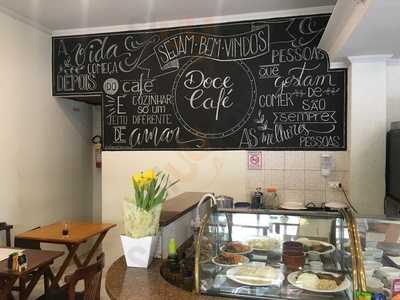 SEJAM-BEM-VINDOS
A vida
COMEÇA
DEPOIS DO
café
É COZINHAR
SÓ UM
JEITO DIFERENTE
DE amar
Doce
Café
PESSOAS
que gostam
DE
COMER SÃO
SEMPRE
AS melhores
PESSOAS